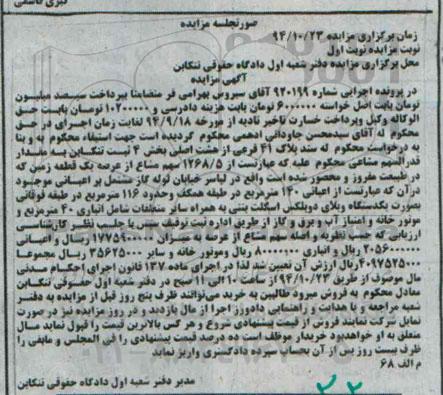 صورتجلسه مزایده
زمان برگزاری مزایده ۹۴/۱۰/۲۳
نوبت مزایده نوبت اول
محل برگزاری مزایده دفتر شعبه اول دادگاه حقوقی تنکابن
آگهی مزایده
در پرونده اجرایی شماره ۹۲۰۱۹۹ آقای سیروس بهرامی فر متضامنا بپرداخت سیصد میلیون
تومان بابت اصل خواسته ۶۰۰۰۰۰۰ تومان بابت هزینه دادرسی و ۱۰۲۰۰۰۰۰ تومان بابت حق
الوکاله وکیل وپرداخت خسارت تاخیر تادیه از مورخه ۹۴/۹/۱۸ لغایت زمان اجرای در حق
محکوم له آقای سیدمحسن جاودانی ادهمی محکوم گردیده است جهت استیفاء محکوم به و بنا
به درخواست محکوم له سند پلاک ۴۱ فرعی از هشت اصلی بخش ۴ ثبت تنکابن به مقدار
قدرالسهم مشاعی محکوم علیه که عبارتست از ۱۲۶۸/۵ سهم مشاع از عرصه یک قطعه زمین که
در طبیعت مفروز و محصور شده است واقع در لیاسر خیابان لوله گاز مشتمل بر اعیانی موجود
درآن که عبارتست از اعیانی ۱۴۰ مترمربع در طبقه همکف وحدود ۱۱۶ مترمربع در طبقه فوقانی
بصورت یکدستگاه ویلای دوبلکس اسکلت بتنی به همراه سایر متعلقات شامل انباری ۴۰ مترمربع و
موتور خانه و امتیاز آب و برق وگاز از طریق اداره ثبت توقیف سپس با جلب نظر کارشناسی
ارزیابی که حسب نظریه و اصله سهم مشاع از عرصه به میزان ۱۷۷۵۹۰۰۰۰۰ ریال و اعیانی
۲۰۵۶۰۰۰۰۰۰ ریال و انباری ۸۰۰۰۰۰۰۰ ریال وموتور خانه و سایر ۳۵۶۲۵۰۰۰ ریال مجموعا
۴۰۹۷۵۲۵۰۰۰ریال ارزش آن تعیین شد لذا در اجرای ماده ۱۳۷ قانون اجرای احکام مدنی
مال موصوف از طریق ۹۴/۱۰/۲۳ از ساعت ۱۰ الی ۱۱ صبح در دفتر شعبه اول حقوقی تنکابن
معادل محکوم به فروش میرود طالبین به خرید می‌توانند ظرف پنج روز قبل از مزایده به دفتر
شعبه مراجعه و با هدایت و راهنمایی دادورز اجرا از مال بازدید و در روز مزایده نیز در صورت
تمایل شرکت نمایند فروش از قیمت پیشنهادی شروع و هر کس بالاترین قیمت را قبول نماید مال
متعلق به او خواهدبود خریدار موظف است ده درصد قیمت پیشنهادی را فی المجلس و مابقی را
ظرف بیست روز پس از آن بحساب سپرده دادگستری واریز نماید
م الف ۶۸
مدیر دفتر شعبه اول دادگاه حقوقی تنکابن
۲۲